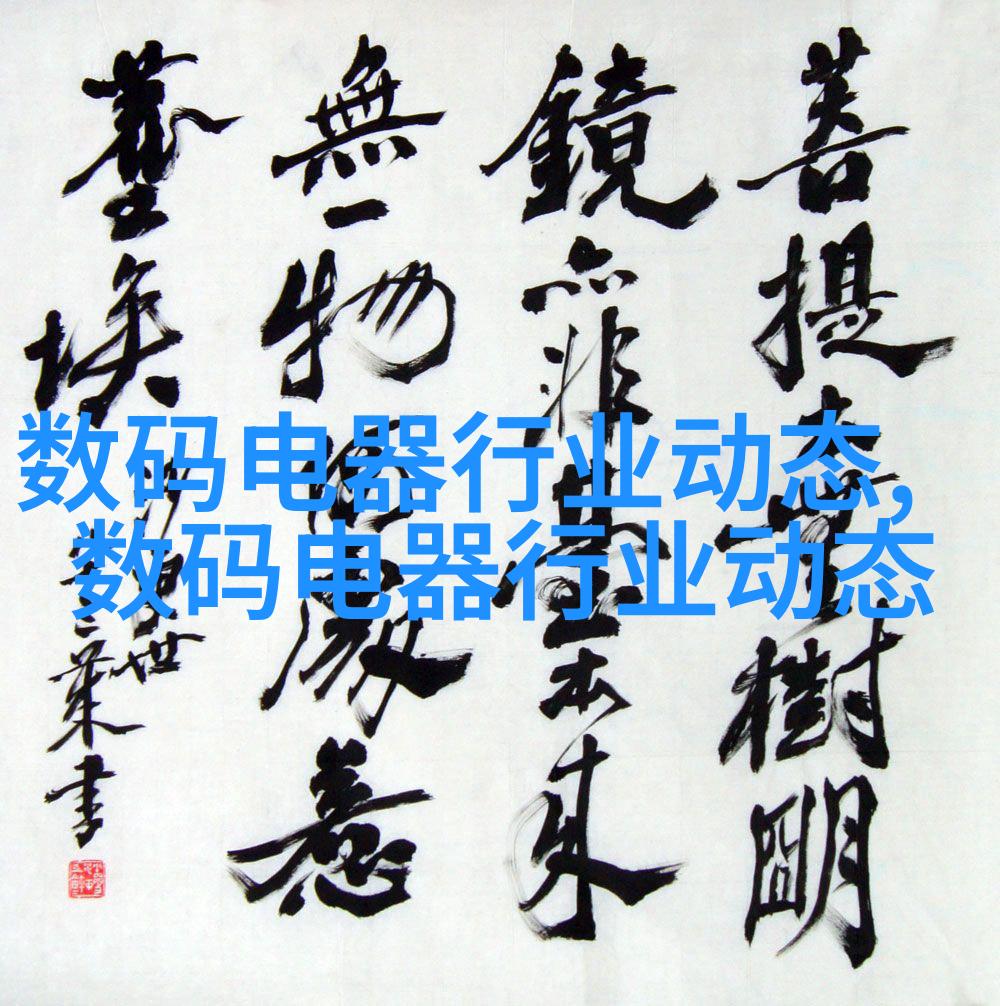 数码电器行业动态,
数码电器行业动态
菩提本無樹明
鏡亦非臺本來
無一物何處惹
塵埃